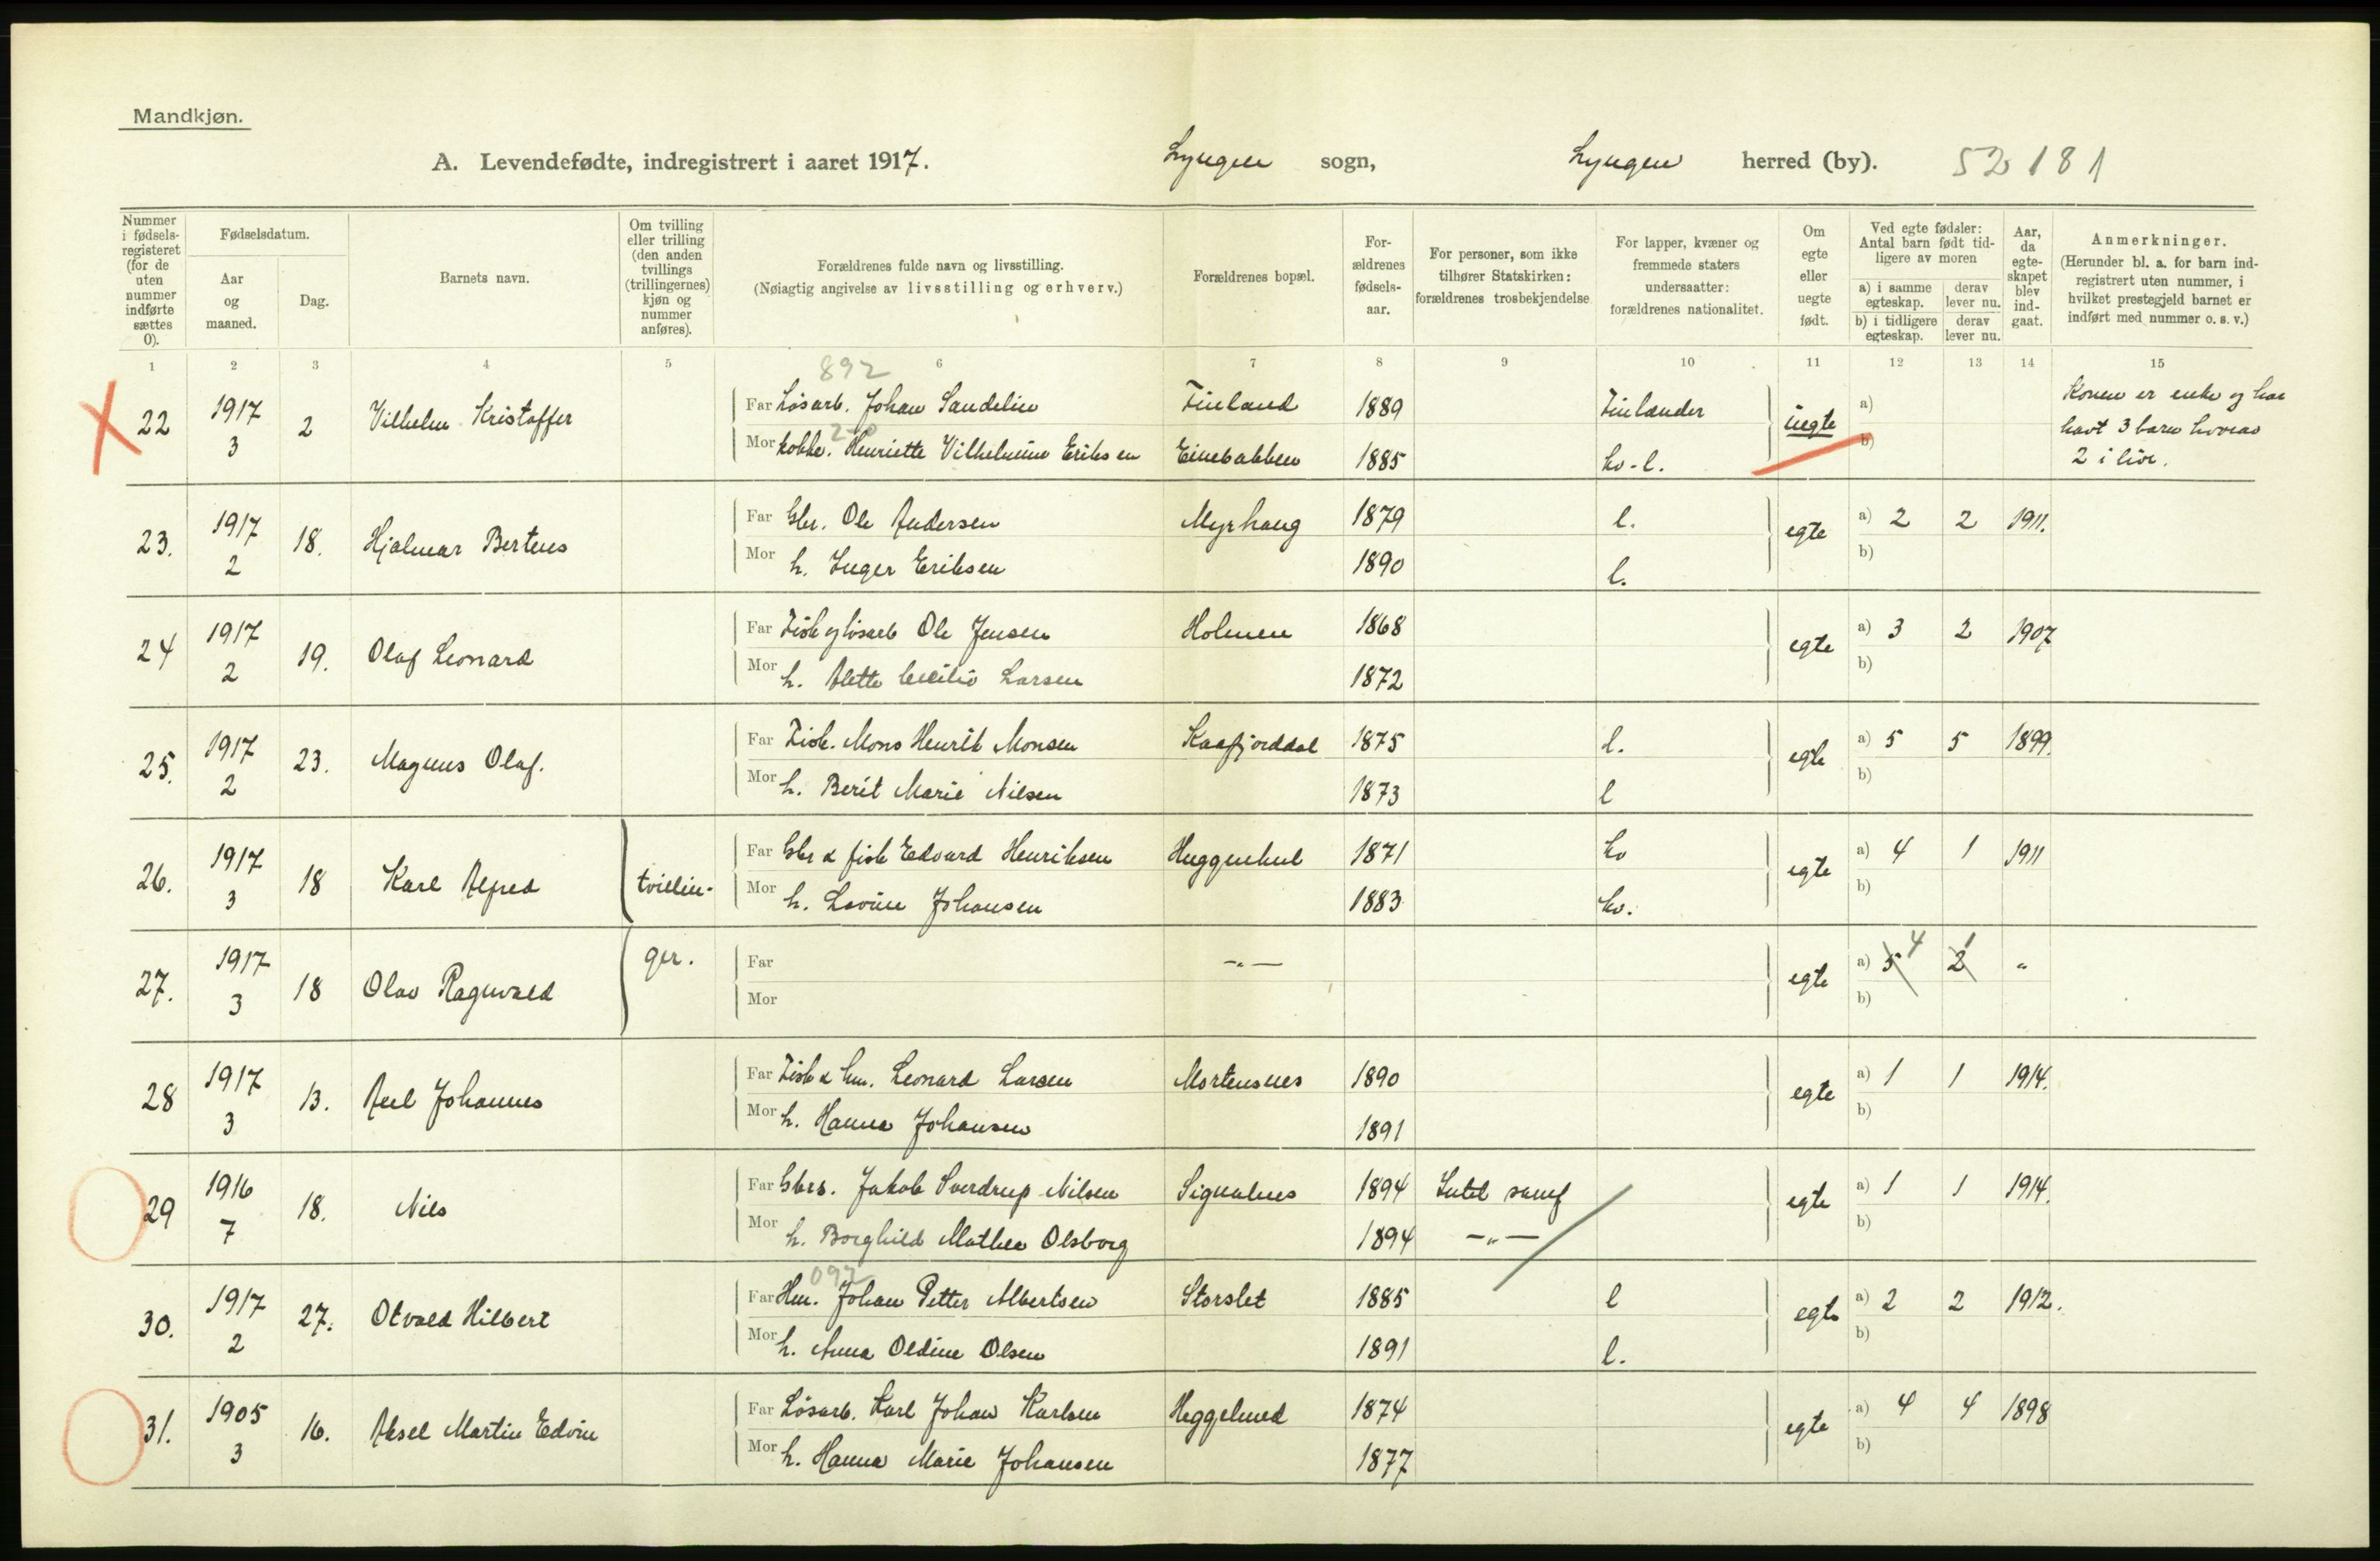 Mandkjøn.
A. Levendefødte, indregistrert i aaret 1917. Lyngen sogn, Lyngen herred (by). 52 181
Nummer i fødsels-registeret (for de uten nummer indførte sættes 0).
Fødselsdatum.
Aar og maaned.
Dag.
Barnets navn.
Om tvilling eller trilling (den anden tvillings (trillingernes) kjøn og nummer anføres).
Forældrenes fulde navn og livsstilling.
(Nøiagtig angivelse av livsstilling og erhverv.)
Forældrenes bopæl.
For-ældrenes fødsels-aar.
For personer, som ikke tilhører Statskirken: forældrenes trosbekjendelse
For lapper, kvæner og fremmede staters undersaatter: forældrenes nationalitet.
Om egte eller uegte født.
Ved egte fødsler: Antal barn født tid-ligere av moren
a) i samme egteskap. derav lever nu.
b) i tidligere egteskap. derav lever nu.
Aar, da egte-skapet blev ind-gaat.
Anmerkninger.
(Herunder bl. a. for barn ind-registrert uten nummer, i hvilket prestegjeld barnet er indført med nummer o. s. v.)
1 2 3 4 5 6 7 8 9 10 11 12 13 14 15
892
22 1917 3 2 Vilhelm Kristoffer Far Løsarb. Johan Sandelin Finland 1889 Finlænder uegte a) b) Konen er enke og har
havt 3 barn hvorav
2 i live.
Mor kokke. Henriette Vilhelmine Eriksen Einebakken 1885 kv-l.
23. 1917 2 18. Hjalmar Berteus Far Gbr. Ole Andersen Myrhaug 1879 l. egte a) 2 2 1911.
Mor h. Inger Eriksen 1890 l. b)
24 1917 2 19. Olaf Leonard Far Fisk og løsarb Ole Jensen Holmen 1868 egte a) 3 2 1907
Mor h. Alette Cecilie Larsen 1872 b)
25. 1917 2 23. Magnus Olaf. Far Fisk. Mons Henrik Monsen Kaafjorddal 1875 l. egte a) 5 5 1899.
Mor h. Berit Marie Nilsen 1873 l b)
26. 1917 3 18 Karl Alfred tvillin- Far Gbr & fisk Edvard Henriksen 1871 kv egte a) 4 1 1911
Mor h. Lovise Johansen 1883 kv. b)
27. 1917 3 18 Olav Ragnvald ger. Far -"- egte a) 5 4 2 1 "
Mor b)
28 1917 3 13. Axel Johannes Far Fisk & hm. Leonard Larsen Mortensnes 1890 egte a) 1 1 1914.
Mor h. Hanna Johansen 1891 b)
29 1916 7 18. Nils Far Gbrs. Jakob Sverdrup Nilsen Signalnes 1894 Luth samf egte a) 1 1 1914.
Mor h. Borghild Mathea Olsborg 1894 -"- b)
092
30. 1917 2 27. Otvald Hilbert Far Hm. Johan Petter Albertsen Storslet 1885 l egte a) 2 2 1912.
Mor h. Anna Oldine Olsen 1891 l. b)
31. 1905 3 16. Aksel Martin Edvin Far Løsarb. Karl Johan Karlsen Heggelund 1874 egte a) 4 4 1898
Mor h. Hanna Marie Johansen 1877 b)